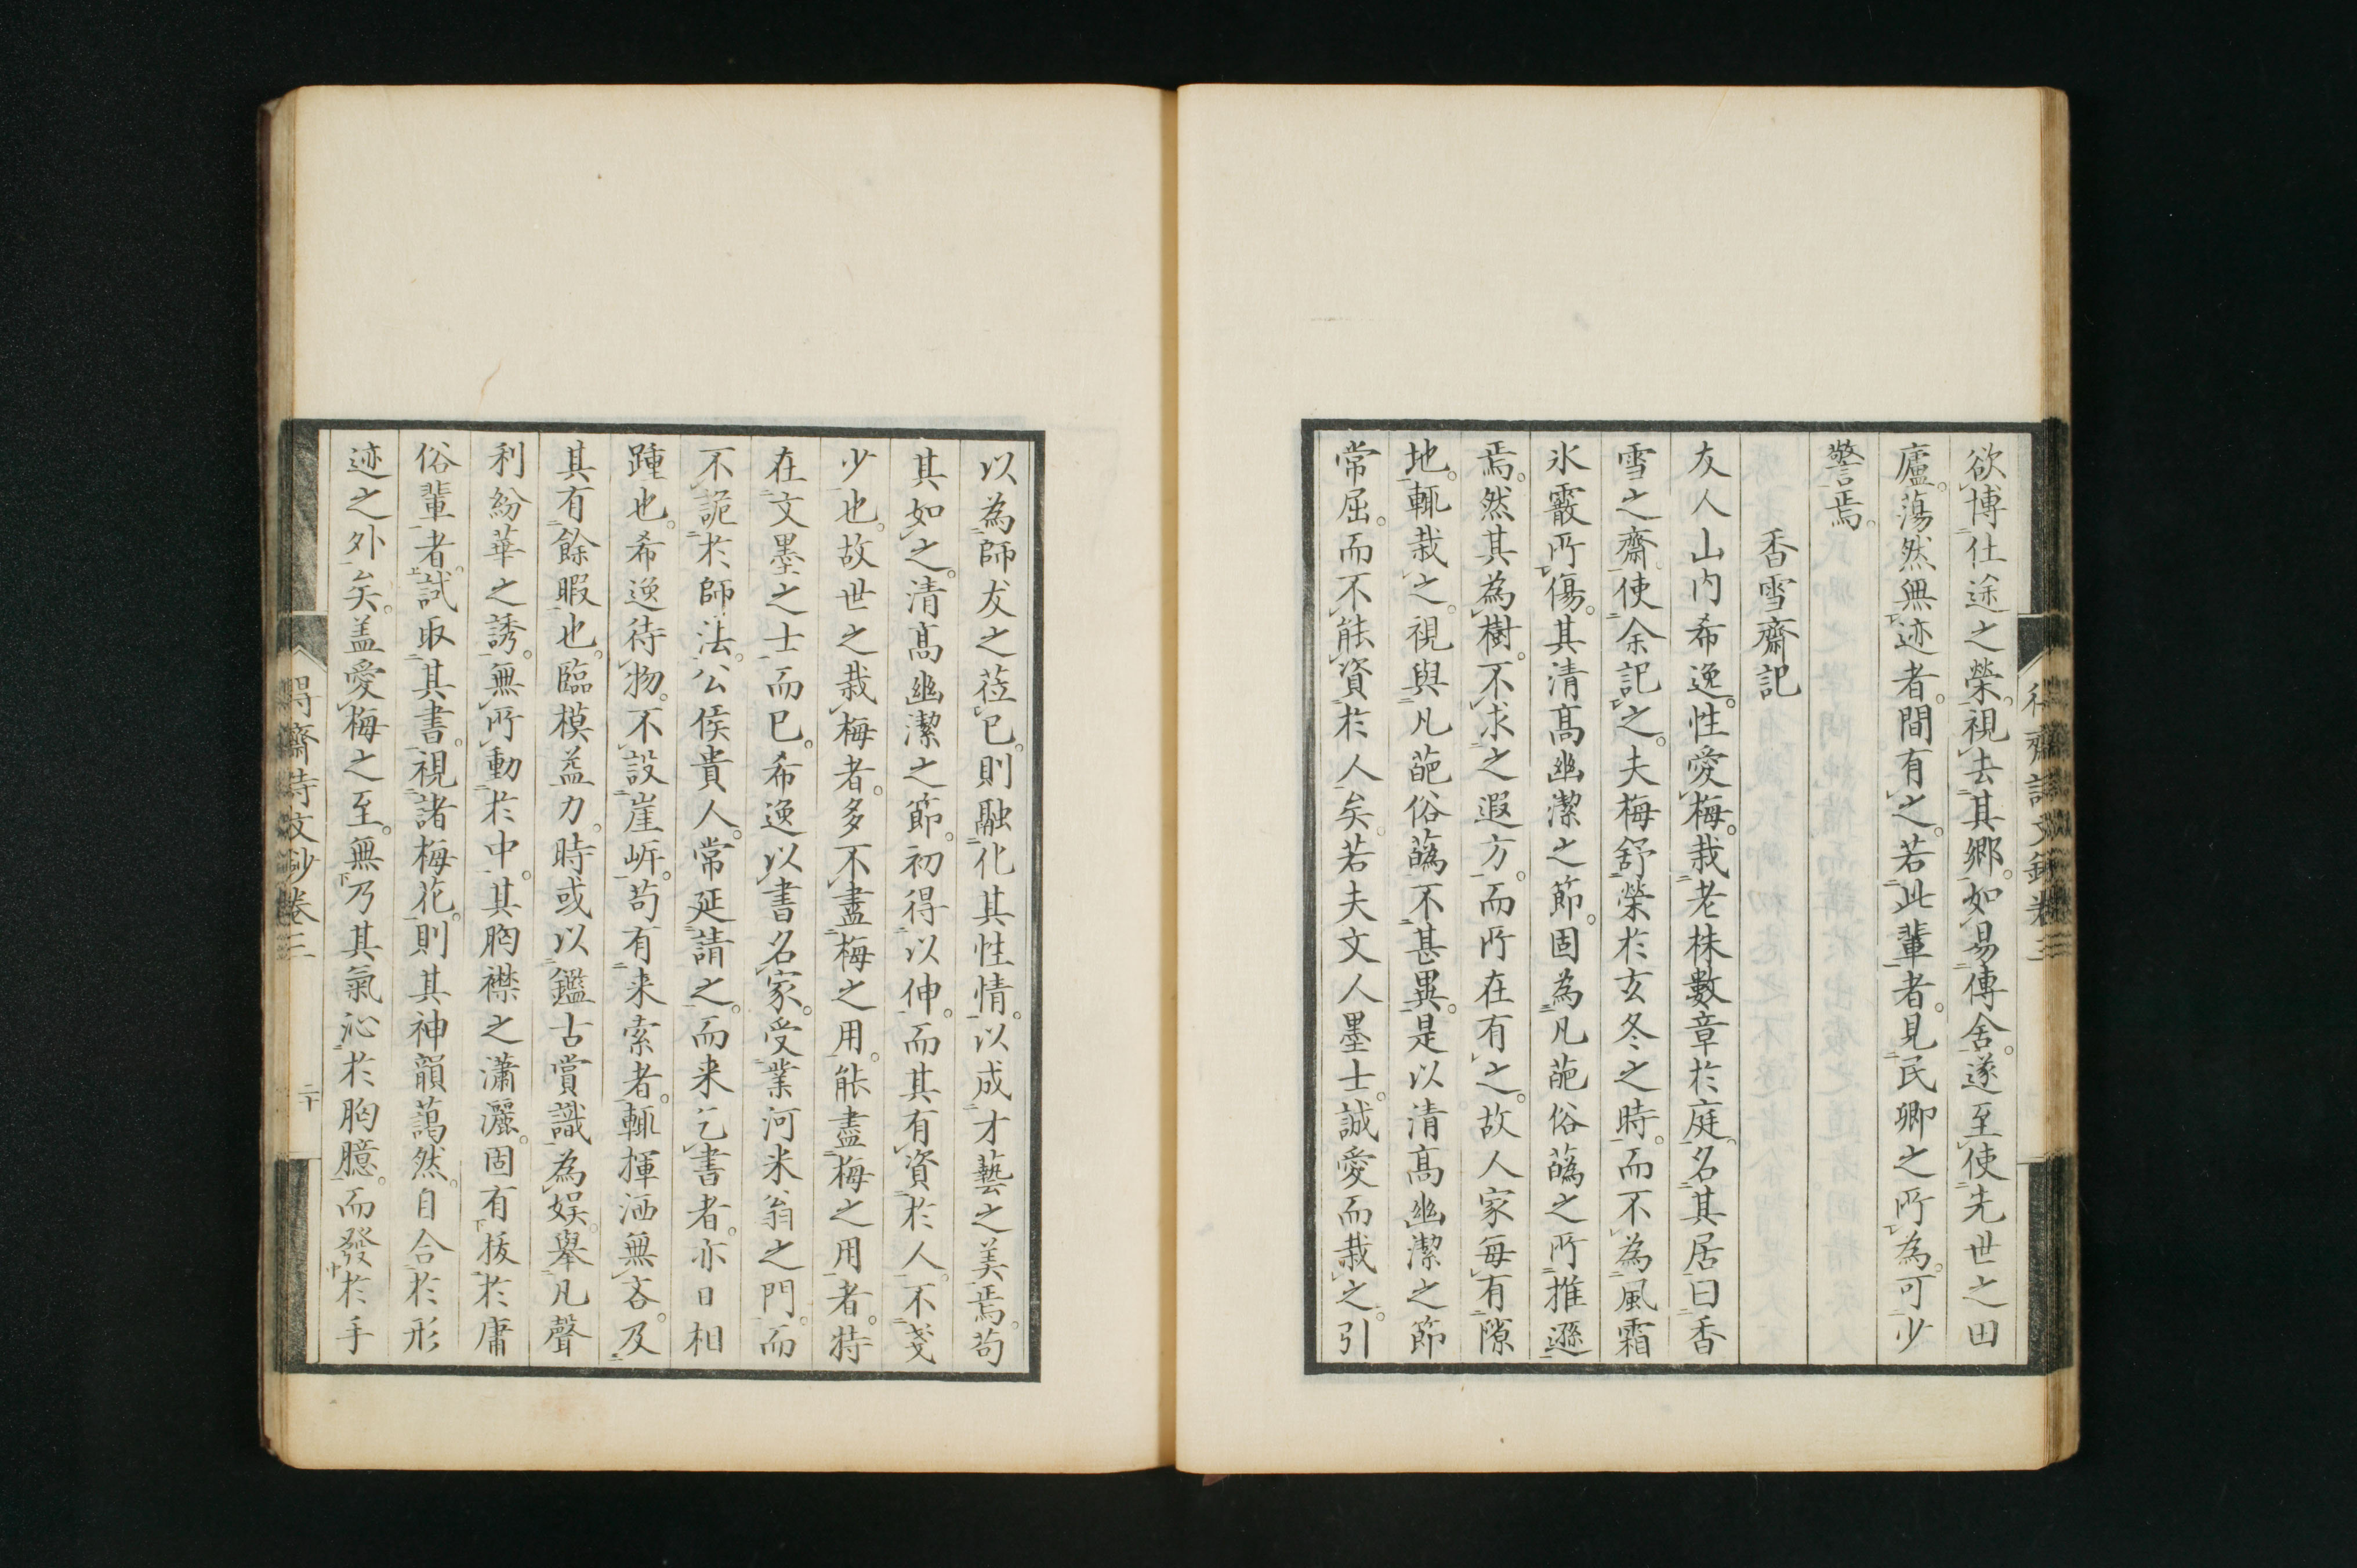 欲博仕途之榮。視去其鄉。如易傳舍。遂至使先世之田
廬。蕩然無迹者。間有之。若此輩者。見民卿之所為。可少
警焉。
香雪齋記
友人山内希逸。性愛梅。栽老株數章於庭。名其居曰香
雪之齋。使余記之。夫梅舒榮於玄冬之時。而不為風霜
氷霰所傷。其清髙幽潔之節。固為凡葩俗蘤之所推遜
焉。然其為樹。不求之遐方。而所在有之。故人家每有隙
地。輒栽之。視與凡葩俗蘤不甚異。是以清髙幽潔之節
常屈。而不能資於人矣。若夫文人墨士。誠愛而栽之。引
以為師友之莅已。則融化其性情。以成才藝之美焉。苟
其如之。清髙幽潔之節。初得以伸。而其有資於人。不戔
少也。故世之栽梅者。多不盡梅之用。能盡梅之用者。特
在文墨之士而已。希逸以書名家。受業河米翁之門。而
不詭於師法。公侯貴人。常延請之。而来乞書者。亦日相
踵也。希逸待物。不設崖岸。苟有来索者。輒揮洒無吝。及
其有餘暇也。臨模益力。時或以鑑古賞識為娯。舉凡聲
利紛華之誘。無所動於中。其胸襟之瀟灑。固有拔於庸
俗輩者。試取其書。視諸梅花。則其神韻藹然。自合於形
迹之外矣。盖愛梅之至。無乃其氣沁於胸臆。而發於手
得齋詩文鈔卷三
二十